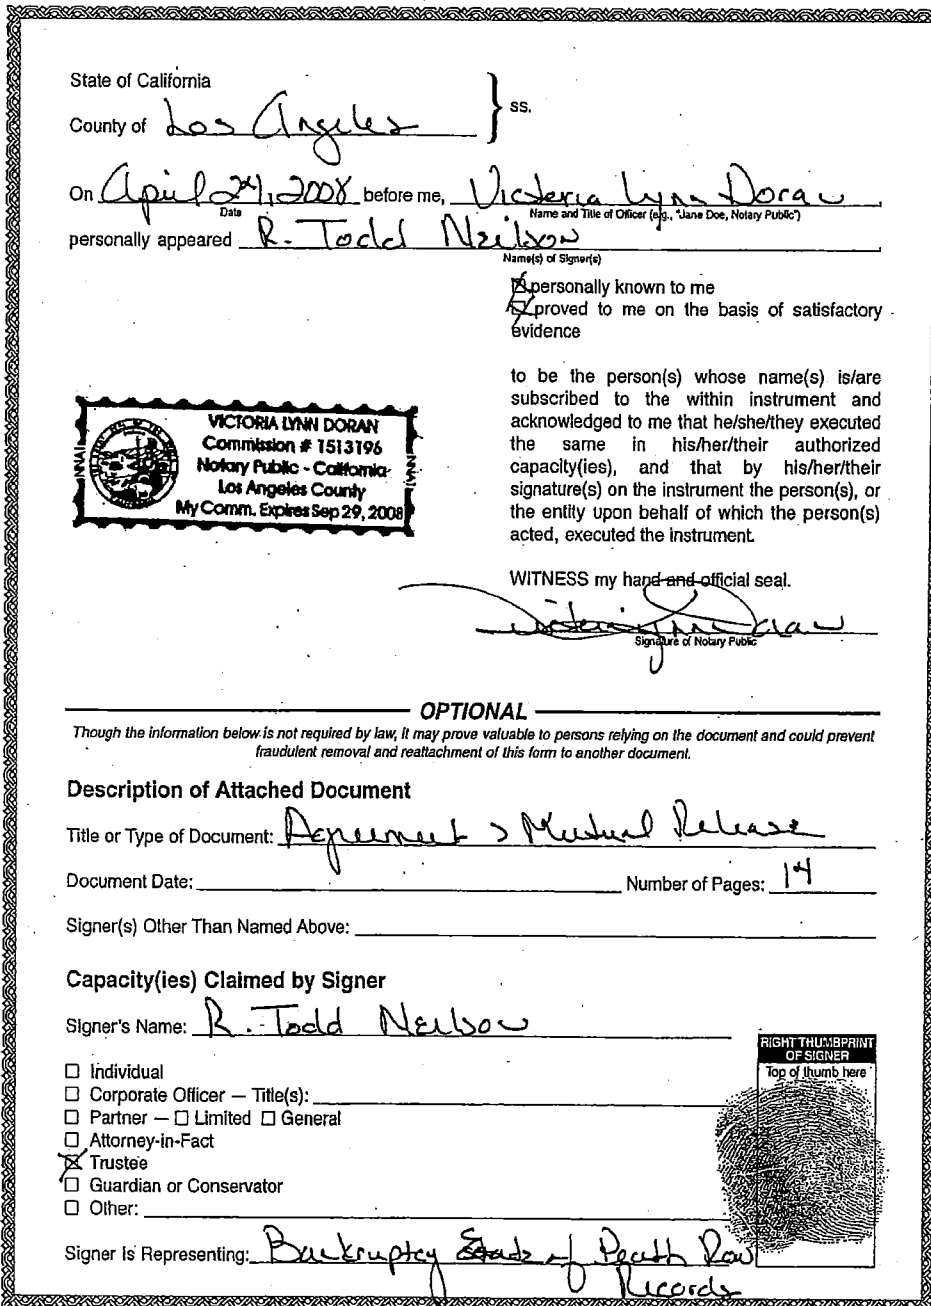 State of California
County of Los Angeles } ss.
On April 24, 2008 before me, Victoria Lynn Doran,
Date Name and Title of Officer (e.g., "Jane Doe, Notary Public")
personally appeared R. Todd Neilson
Name(s) of Signer(s)
☒ personally known to me
☒ proved to me on the basis of satisfactory
evidence
to be the person(s) whose name(s) is/are
subscribed to the within instrument and
acknowledged to me that he/she/they executed
the same in his/her/their authorized
capacity(ies), and that by his/her/their
signature(s) on the instrument the person(s), or
the entity upon behalf of which the person(s)
acted, executed the instrument.
VICTORIA LYNN DORAN
Commission # 1513196
Notary Public - California
Los Angeles County
My Comm. Expires Sep 29, 2008
WITNESS my hand and official seal.
Victoria Lynn Doran
Signature of Notary Public
OPTIONAL
Though the information below is not required by law, it may prove valuable to persons relying on the document and could prevent
fraudulent removal and reattachment of this form to another document.
Description of Attached Document
Title or Type of Document: Agreement & Mutual Release
Document Date: Number of Pages: 14
Signer(s) Other Than Named Above:
Capacity(ies) Claimed by Signer
Signer's Name: R. Todd Neilson
☐ Individual
☐ Corporate Officer — Title(s):
☐ Partner — ☐ Limited ☐ General
☐ Attorney-in-Fact
☒ Trustee
☐ Guardian or Conservator
☐ Other:
RIGHT THUMBPRINT
OF SIGNER
Top of thumb here
Signer Is Representing: Bankruptcy Estate of Death Row
Records